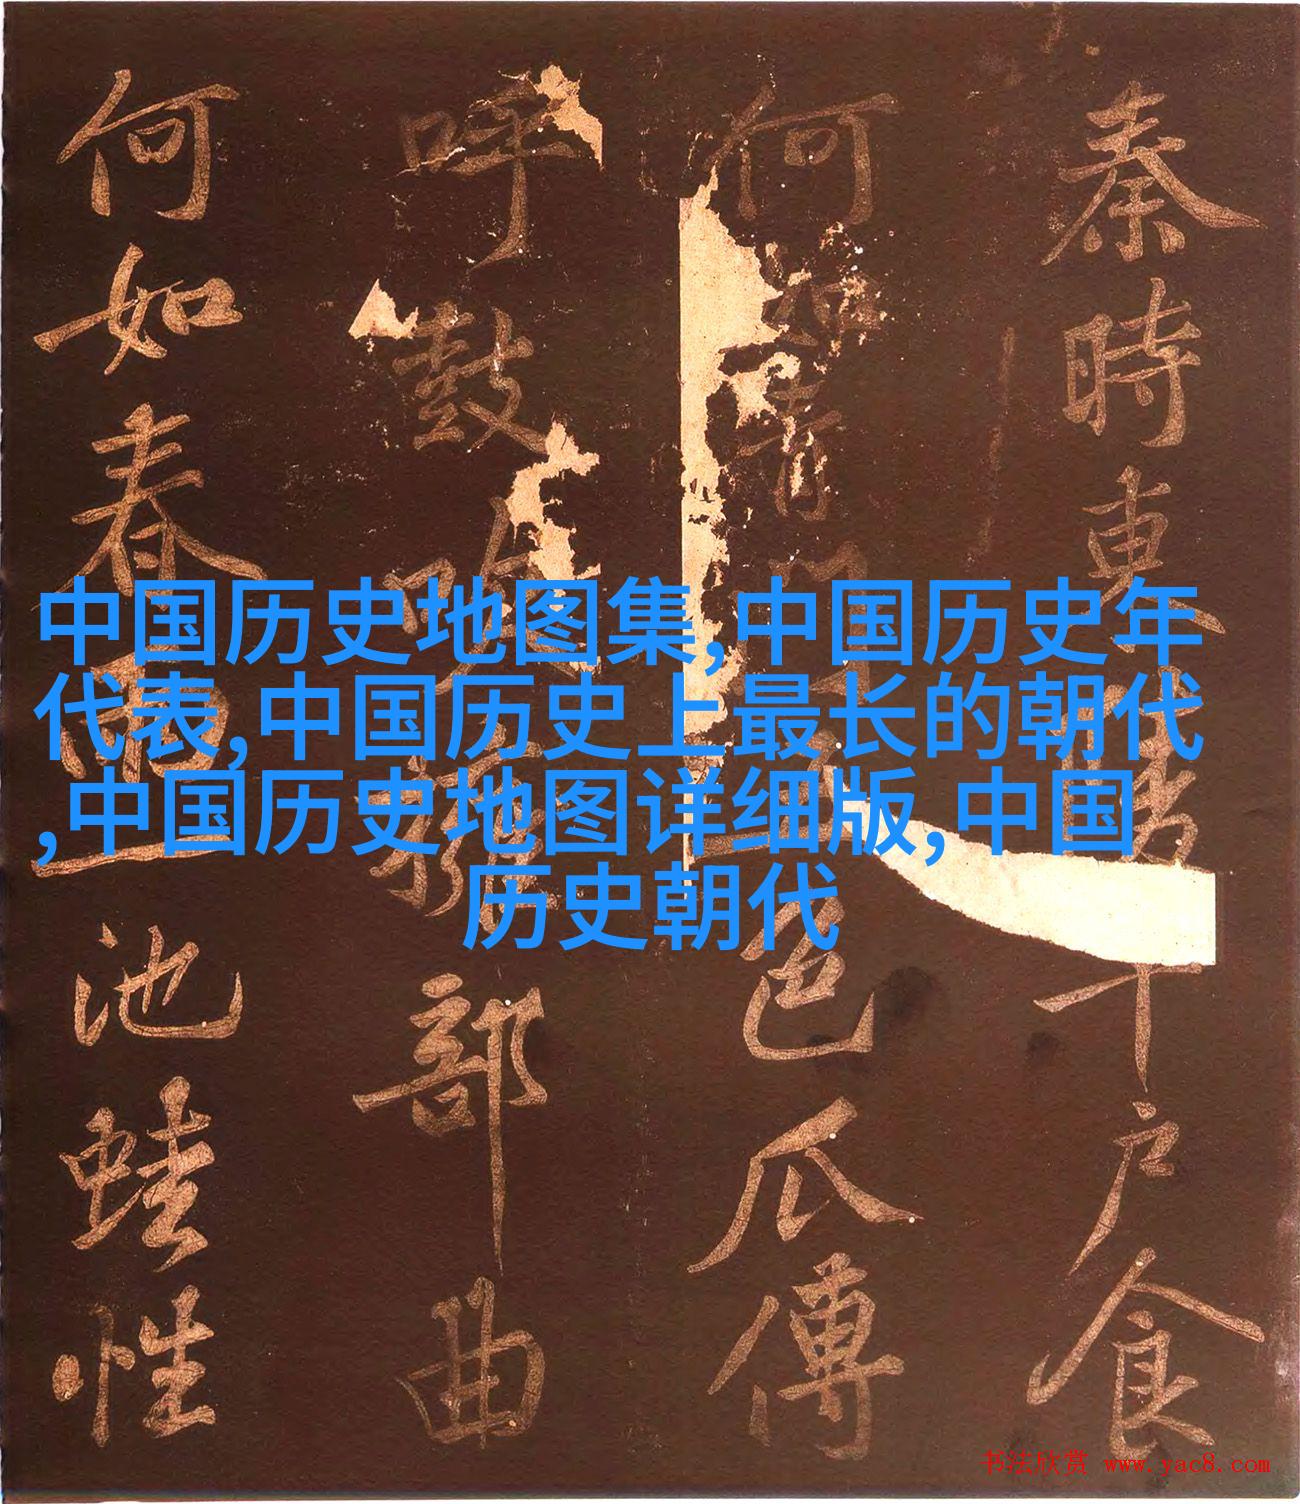 秦時東千戶食
何如青門五色瓜傅
呼鼓吹擁部曲
何如春池蛙性
中国历史地图集,中国历史年
代表,中国历史上最长的朝代
,中国历史地图详细版,中国
历史朝代
书法欣赏 www.yac8.com